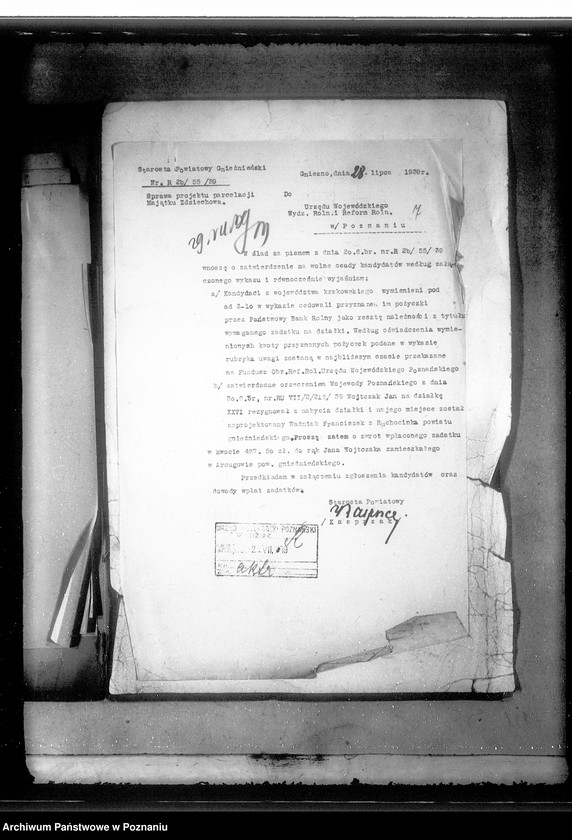 Starosta Powiatowy Gnieźnieński
Nr. R 2b/ 55 /39
Sprawa projektu parcelacji
Majątku Zdziechowa.
Gniezno, dnia 28. lipca 1939r.
Do
Urzędu Wojewódzkiego
Wydz. Roln.i Reform Roln.
w/ P o z n a n i u
7
W ślad za pismem z dnia 20.6.br. nr.R 2b/ 55/ 39
wnoszę o zatwierdzenie na wolne osady kandydatów według załą-
czonego wykazu i równocześnie wyjaśniam:
a/ Kandydaci z województwa krakowskiego wymienieni pod
od 2-10 w wykazie cedowali przyznane im pożyczki
przez Państwowy Bank Rolny jako resztę należności z tytułu
wymaganego zadatku na działki. Według oświadczenia wymie-
nionych kwoty przyznanych pożyczek podane w wykazie
rubryka uwagi zostaną w najbliższym czasie przekazane
na Fundusz Obr.Ref.Rol.Urzędu Wojewódzkiego Poznańskiego
b/ zatwierdzone orzeczeniem Wojewody Poznańskiego z dnia
br, nr.RU 39 Wojtczak Jan na działkę
XXVI rezygnował z nabycia działki i na jego miejsce został
zaprojektowany Woźniak Franciszek z Rochocinka powiatu
gnieźnieńskiego. Proszę zatem o zwrot wpłaconego zadatku
w kwocie 50 zł. do rąk Jana Wojtczaka zamieszkałego
w pow. gnieźnieńskiego.
Przedkładam w załączeniu zgłoszenia kandydatów oraz
dowody wpłat zadatków.
Starosta Powiatowy
K a s p r z a k
Archiwum Państwowe w Poznaniu